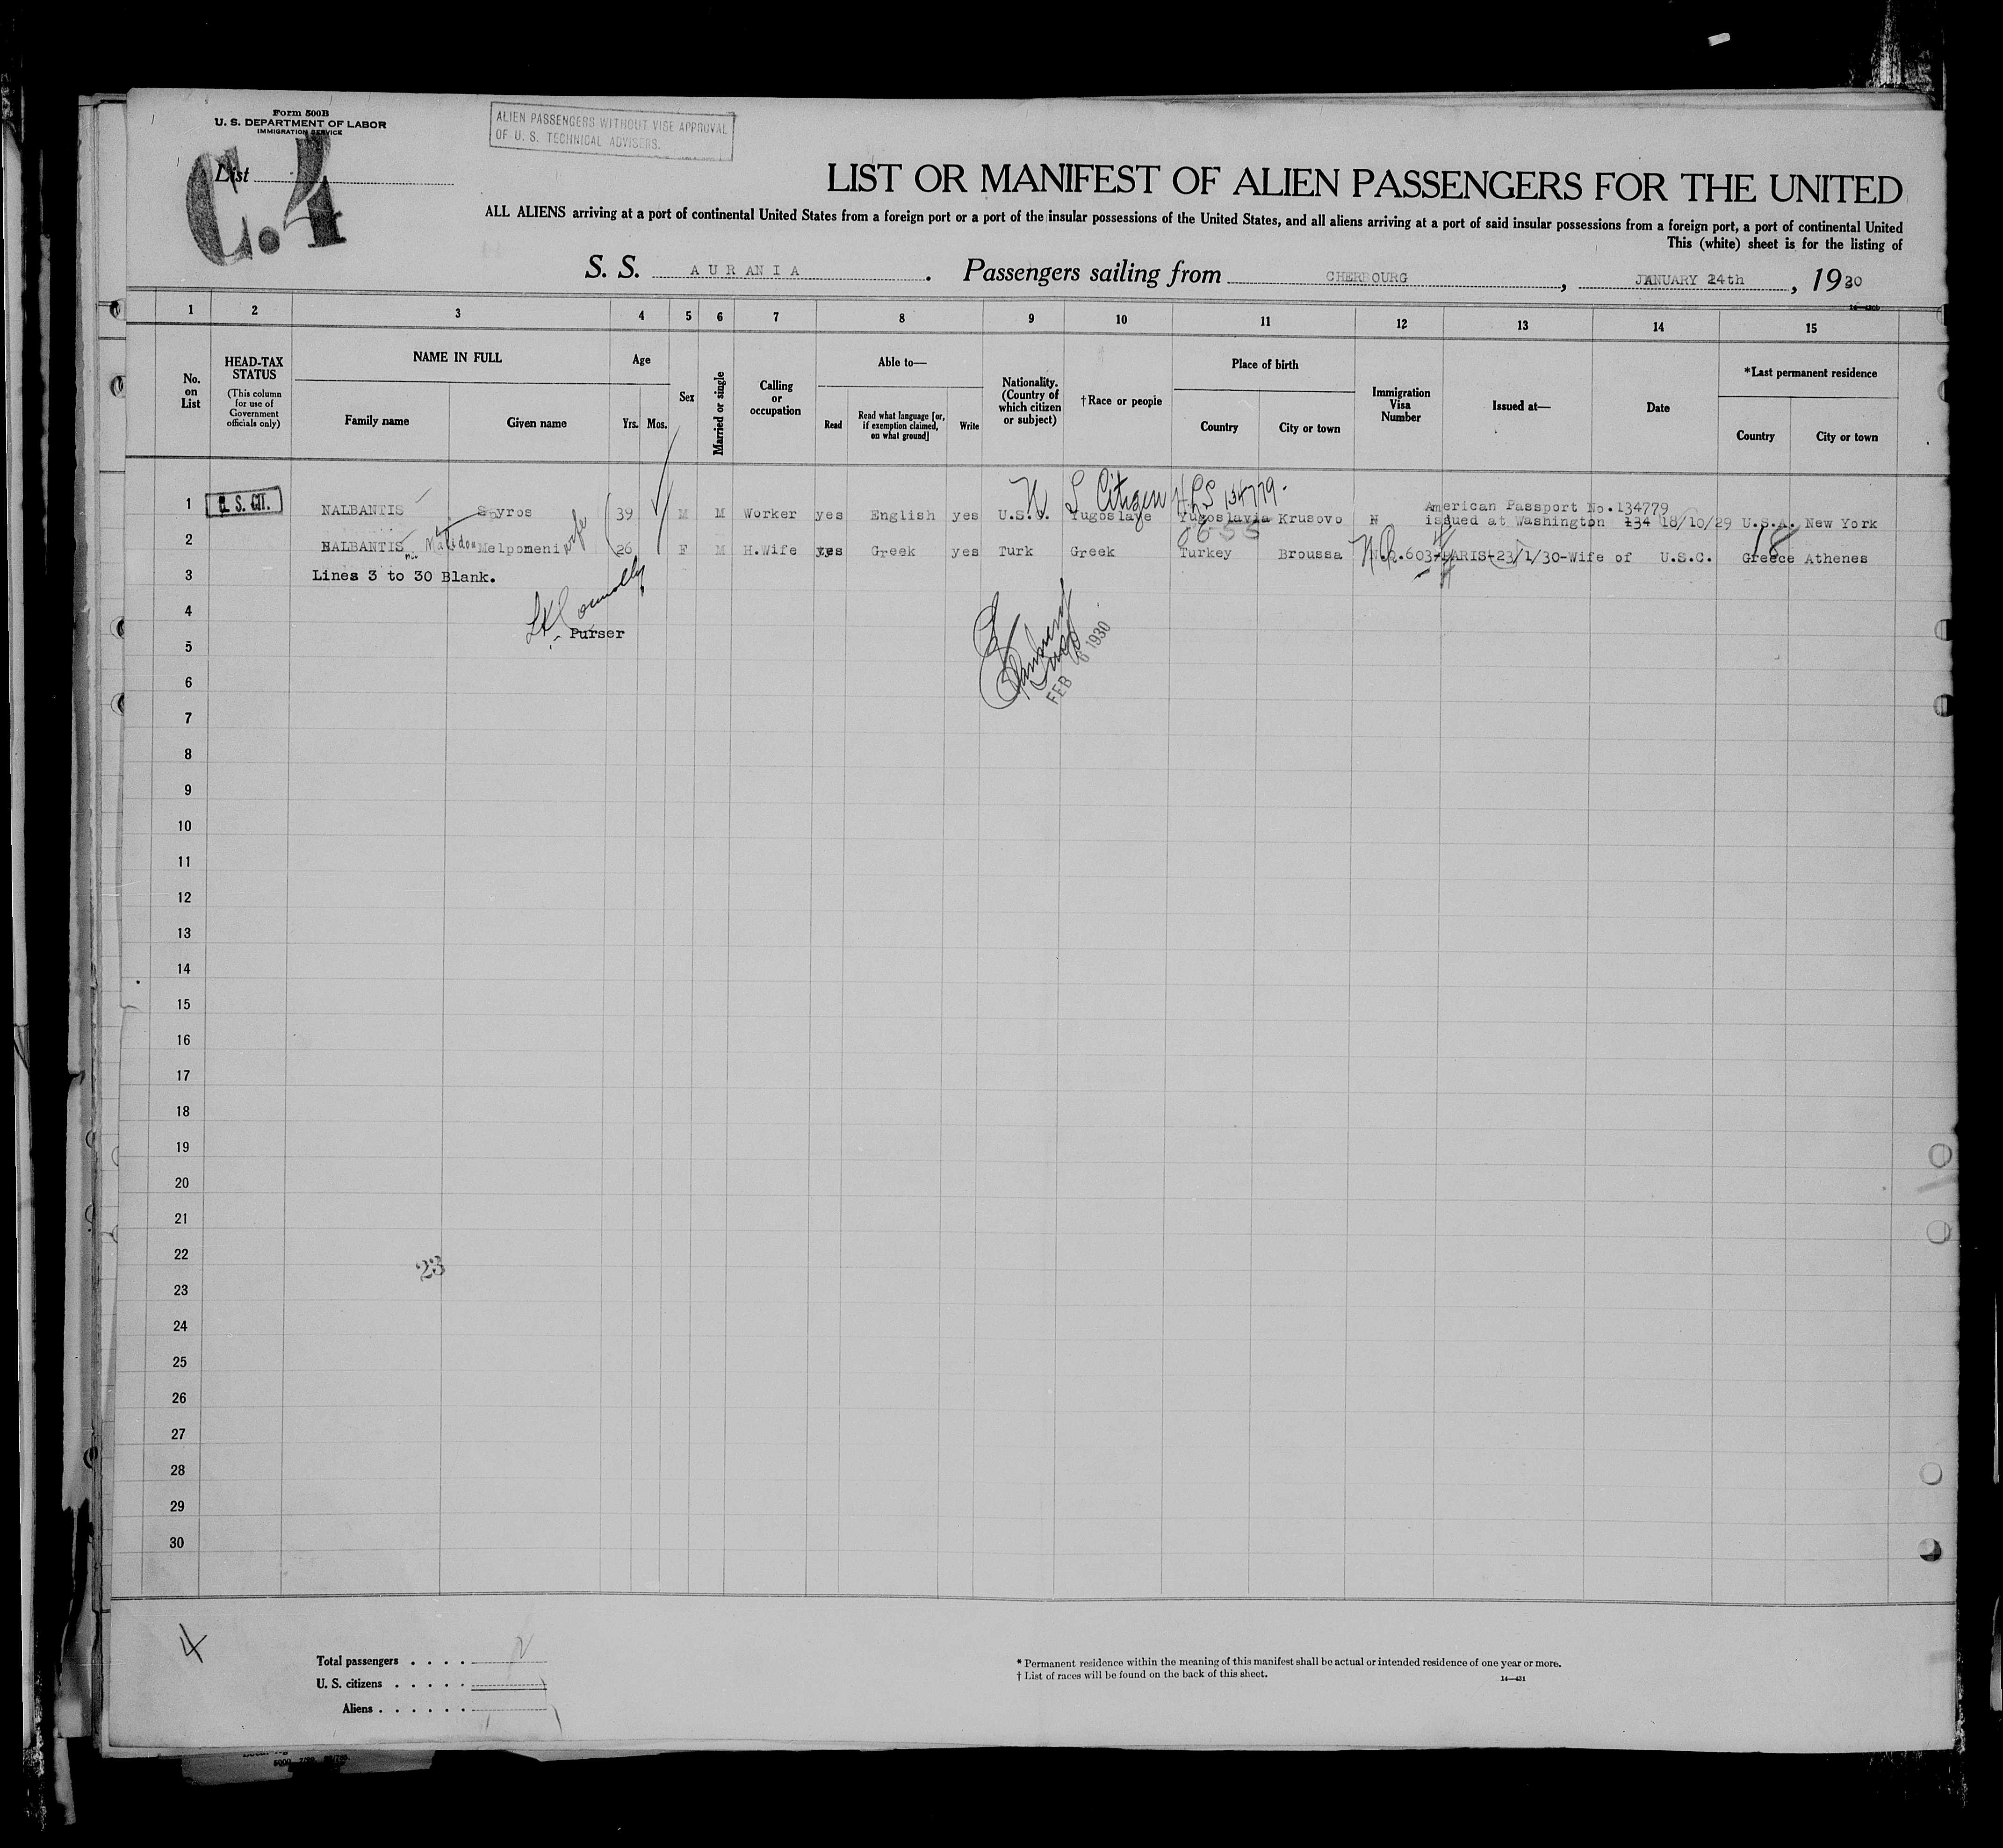 Form 500B
U. S. DEPARTMENT OF LABOR
IMMIGRATION SERVICE
ALIEN PASSENGERS WITHOUT VISE APPROVAL
OF U. S. TECHNICAL ADVISERS.
List
C.4
LIST OR MANIFEST OF ALIEN PASSENGERS FOR THE UNITED
ALL ALIENS arriving at a port of continental United States from a foreign port or a port of the insular possessions of the United States, and all aliens arriving at a port of said insular possessions from a foreign port, a port of continental United
This (white) sheet is for the listing of
S. S. AURANIA. Passengers sailing from CHERBOURG, JANUARY 24th, 1930
1 2 3 4 5 6 7 8 9 10 11 12 13 14 15
No. on List
HEAD-TAX STATUS
(This column for use of Government officials only)
NAME IN FULL
Family name
Given name
Age
Yrs.
Mos.
Sex
Married or single
Calling or occupation
Able to—
Read
Read what language [or, if exemption claimed, on what ground]
Write
Nationality. (Country of which citizen or subject)
†Race or people
Place of birth
Country
City or town
Immigration Visa Number
Issued at—
Date
*Last permanent residence
Country
City or town
U S Citizen 134779
American Passport No.134779
1 U. S. CIT. NALBANTIS Spyros 39 M M Worker yes English yes U.S.A. Yugoslave Yugoslavia Krusovo issued at Washington 134 18/10/29 U.S.A. New York
2 NALBANTIS Melpomeni wife 26 F M H.Wife yes Greek yes Turk Greek Turkey Broussa N.Q.603 PARIS-23/1/30-Wife of U.S.C. Greece Athenes
18
3 Lines 3 to 30 Blank.
4
Purser
5
FEB 6 1930
6
7
8
9
10
11
12
13
14
15
16
17
18
19
20
21
22
23
23
24
25
26
27
28
29
30
4
Total passengers . . . .
U. S. citizens . . . . .
Aliens . . . . . .
* Permanent residence within the meaning of this manifest shall be actual or intended residence of one year or more.
† List of races will be found on the back of this sheet.
14—431